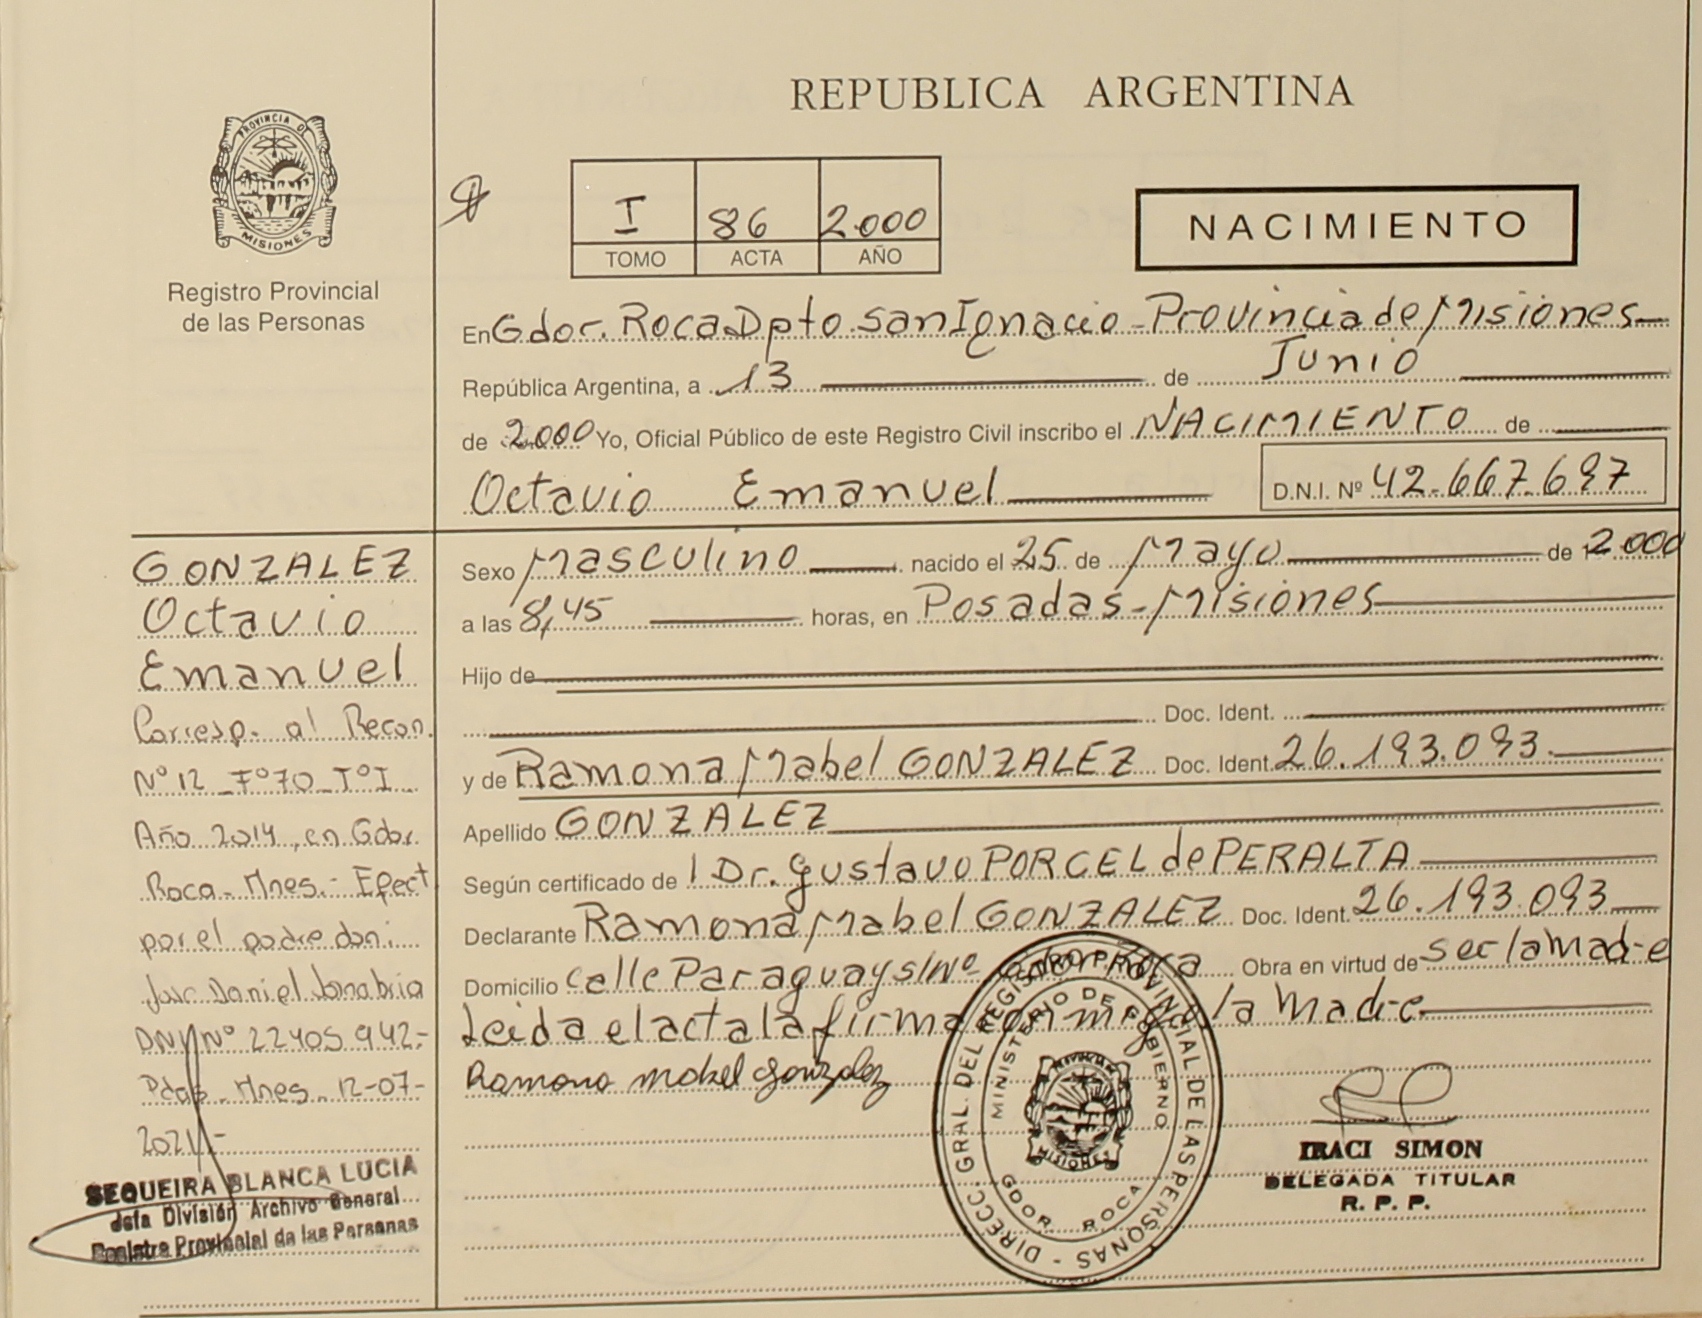 REPUBLICA ARGENTINA
PROVINCIA DE
MISIONES
Registro Provincial
de las Personas
I 86 2.000
TOMO ACTA AÑO
NACIMIENTO
En Gdor. Roca Dpto San Ignacio - Provincia de Misiones
República Argentina, a 13 de Junio
de 2.000 Yo, Oficial Público de este Registro Civil inscribo el NACIMIENTO de
Octavio Emanuel D.N.I. Nº 42.667.697
GONZALEZ
Octavio
Emanuel
Corresp. al Recon.
Nº 12 - Fº 70 - Tº I
Año 2014, en Gdor.
Roca - Mnes. - Efect
por el padre don:
José Daniel Sanabria
DNI Nº 22405.942.-
Pdas - Mnes. 12-07-
2021.-
SEQUEIRA BLANCA LUCIA
Jefa División Archivo General
Registro Provincial de las Personas
Sexo Masculino nacido el 25 de Mayo de 2000
a las 8,45 horas, en Posadas - Misiones
Hijo de
Doc. Ident.
y de Ramona Mabel GONZALEZ Doc. Ident. 26.193.093.
Apellido GONZALEZ
Según certificado de l Dr. Gustavo PORCEL de PERALTA
Declarante Ramona Mabel GONZALEZ Doc. Ident. 26.193.093
Domicilio calle Paraguay s/nº Gdor Roca Obra en virtud de ser la Madre
Leida el acta la firma conmigo la Madre
Ramona Mabel Gonzalez
DIRECC. GRAL. DEL REGISTRO PROVINCIAL DE LAS PERSONAS -
MINISTERIO DE GOBIERNO
GDOR. ROCA
PROVINCIA DE
MISIONES
IRACI SIMON
DELEGADA TITULAR
R. P. P.